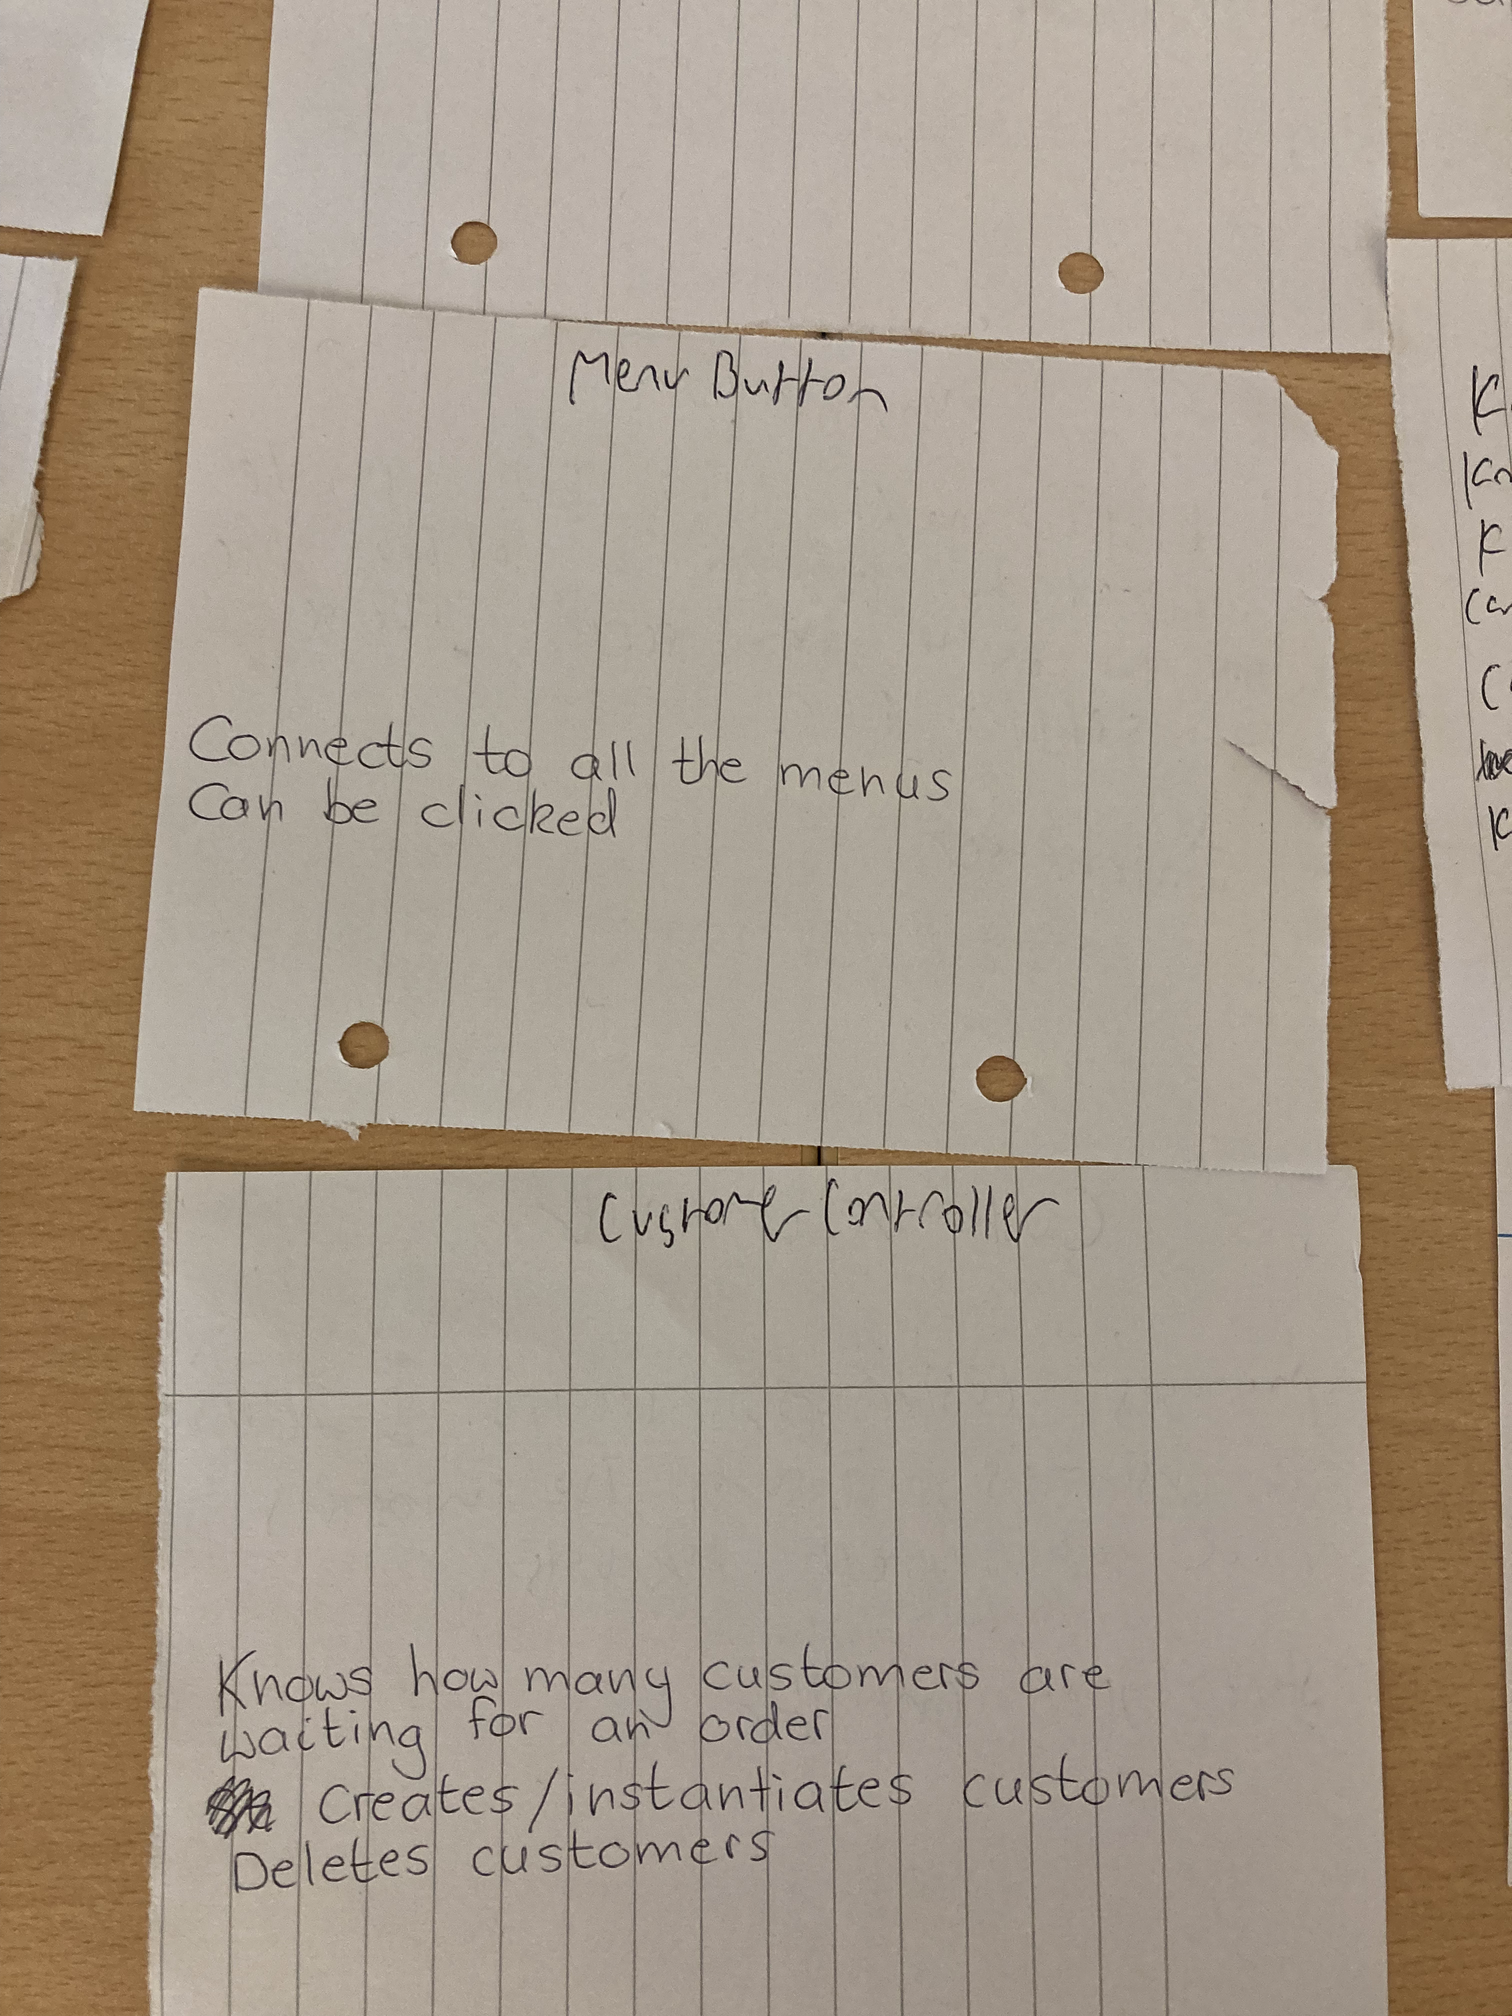 Menu Button
Connects to all the menus
Can be clicked
Customer Controller
Knows how many customers are
waiting for an order
Creates/instantiates customers
Deletes customers